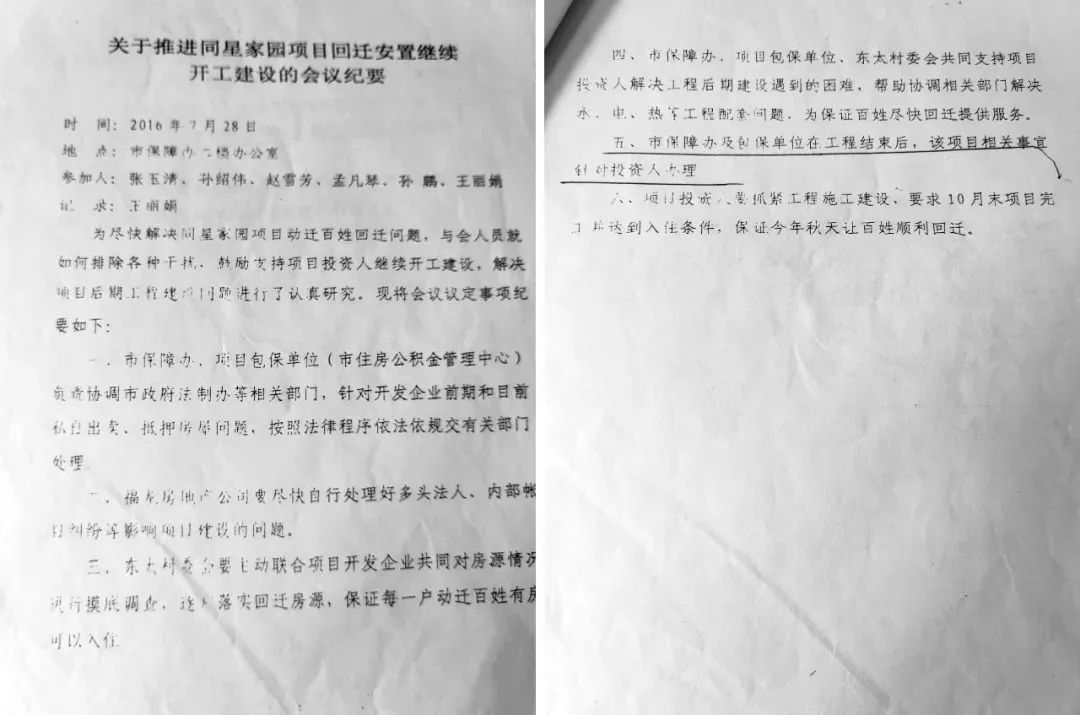 关于推进同星家园项目回迁安置继续
开工建设的会议纪要
时 间：2016年7月28日
地 点：市保障办二楼办公室
参加人：张玉清、孙绍伟、赵雪芳、孟凡琴、孙 鹏、王丽娟
记 录：王丽娟
为尽快解决同星家园项目动迁百姓回迁问题，与会人员就
如何排除各种干扰、鼓励支持项目投资人继续开工建设，解决
项目后期工程建设问题进行了认真研究。现将会议议定事项纪
要如下：
一、市保障办、项目包保单位（市住房公积金管理中心）
负责协调市政府法制办等相关部门，针对开发企业前期和目前
私自出卖、抵押房屋问题，按照法律程序依法依规交有关部门
处理
二、福龙房地产公司要尽快自行处理好多头法人、内部帐
目纠纷等影响项目建设的问题。
三、东太村委会要主动联合项目开发企业共同对房源情况
进行摸底调查，逐户落实回迁房源，保证每一户动迁百姓有房
可以入住
四、市保障办、项目包保单位、东太村委会共同支持项目
投资人解决工程后期建设遇到的困难，帮助协调相关部门解决
水、电、热等工程配套问题，为保证百姓尽快回迁提供服务。
五、市保障办及包保单位在工程结束后，该项目相关事宜
针对投资人办理
六、项目投资人要抓紧工程施工建设，要求10月末项目完
工并达到入住条件，保证今年秋天让百姓顺利回迁。